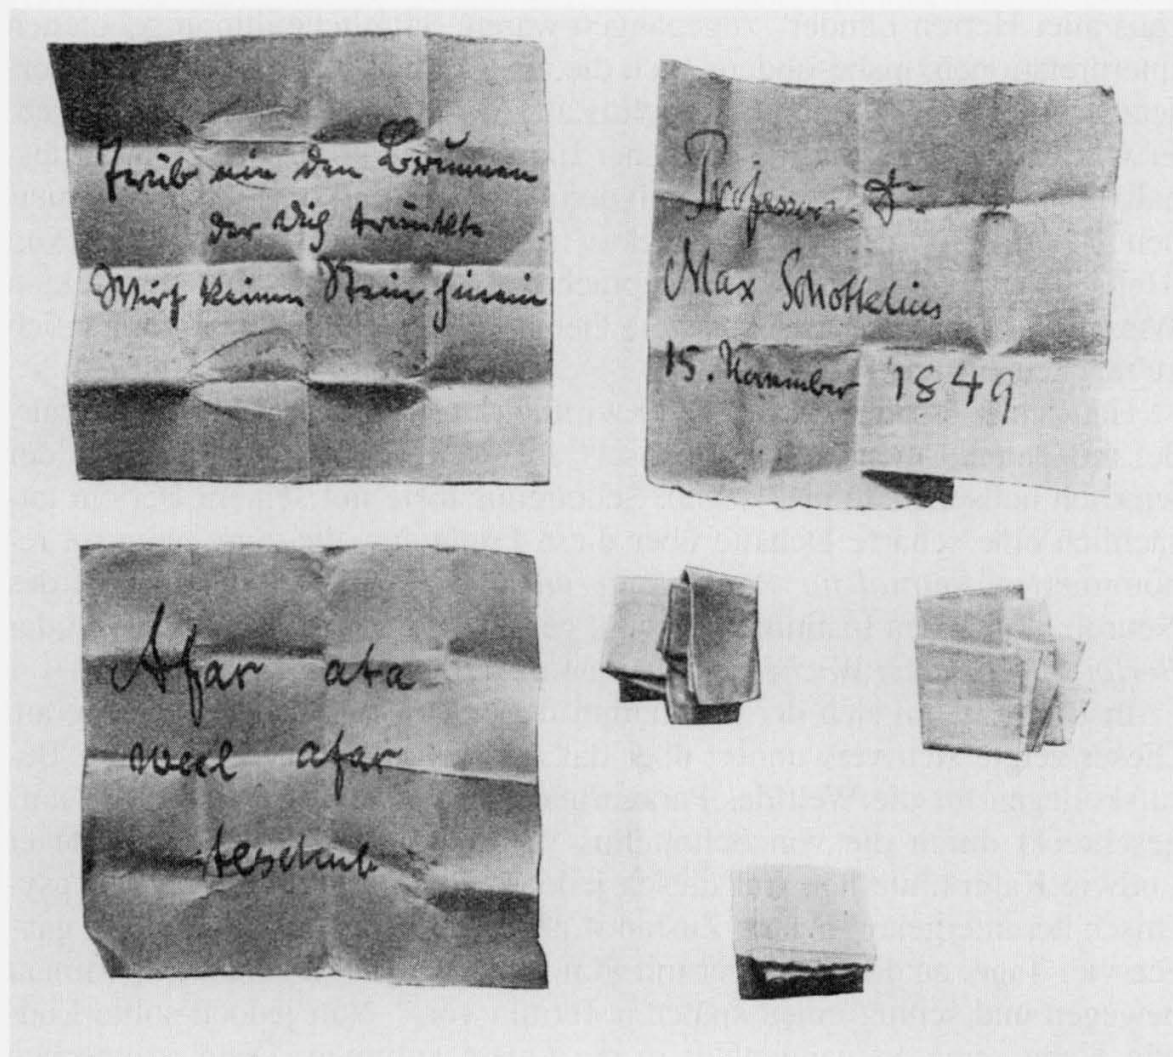 Trüb nie den Brunnen
der Dich tränkte
Wirf keinen Stein hinein
Professor Dr
Max Schottelius
15. November 1849
Afar ata
weel afar
teschub